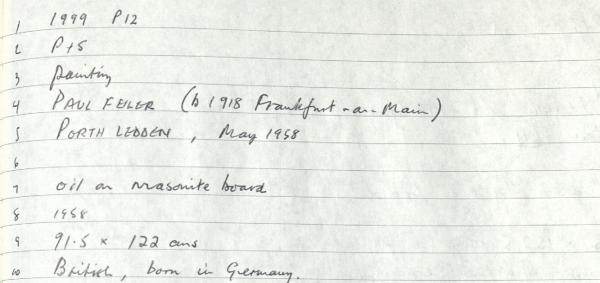 1 1999 P12
2 P+S
3 painting
4 PAUL FEILER (b 1918 Frankfurt-am-Main)
5 PORTH LEDDEN, May 1958
6
7 oil on masonite board
8 1958
9 91.5 x 122 cms
10 British, born in Germany.